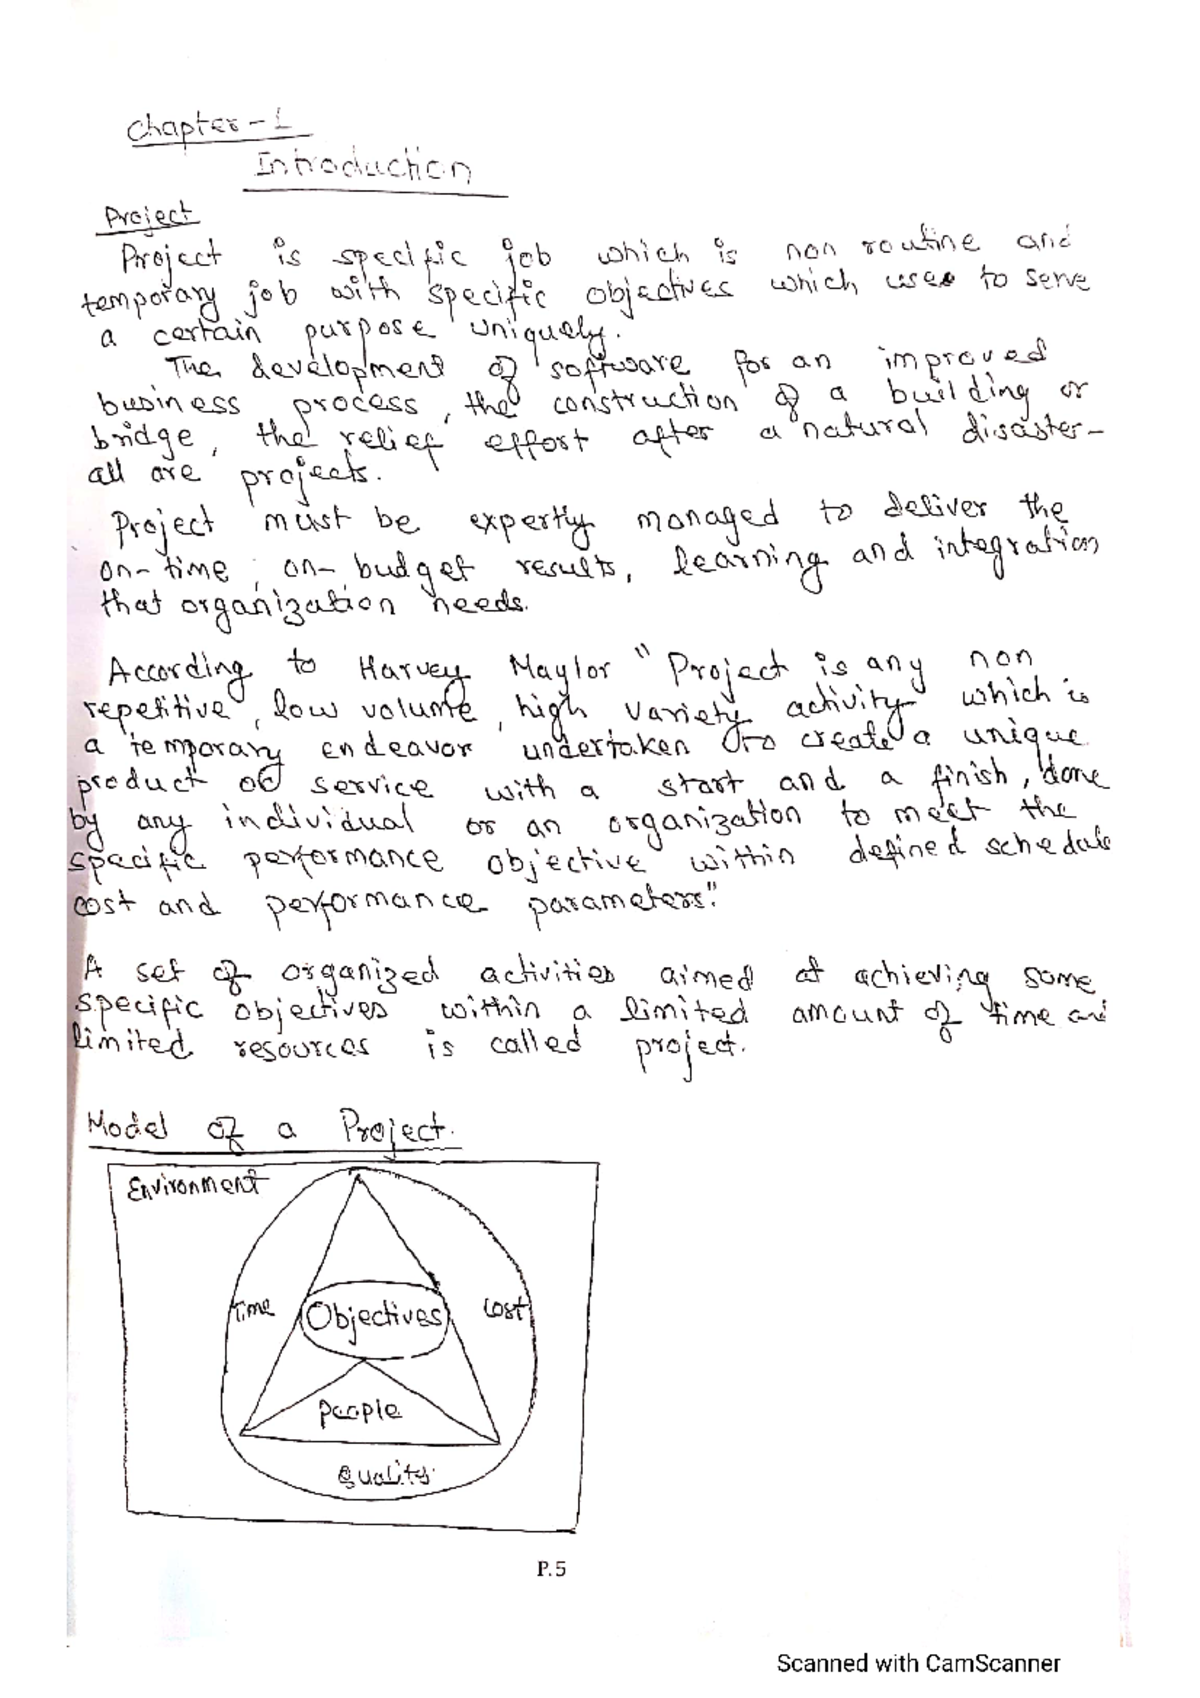 Chapter-1
Introduction
Project
Project is specific job which is non routine and
temporary job with specific objectives which uses to serve
a certain purpose uniquely.
The development of software for an improved
business process, the construction of a building or
bridge, the relief effort after a natural disaster-
all are projects.
Project must be expertly managed to deliver the
on-time, on-budget results, learning and integration
that organization needs.
According to Harvey Maylor "Project is any non
repetitive, low volume, high variety activity which is
a temporary endeavor undertaken to create a unique
product or service with a start and a finish, done
by any individual or an organization to meet the
specific performance objective within defined schedule
cost and performance parameters".
A set of organized activities aimed at achieving some
specific objectives within a limited amount of time and
limited resources is called project.
Model of a Project.
Environment
Time Objectives Cost
People
Quality
P.5
Scanned with CamScanner